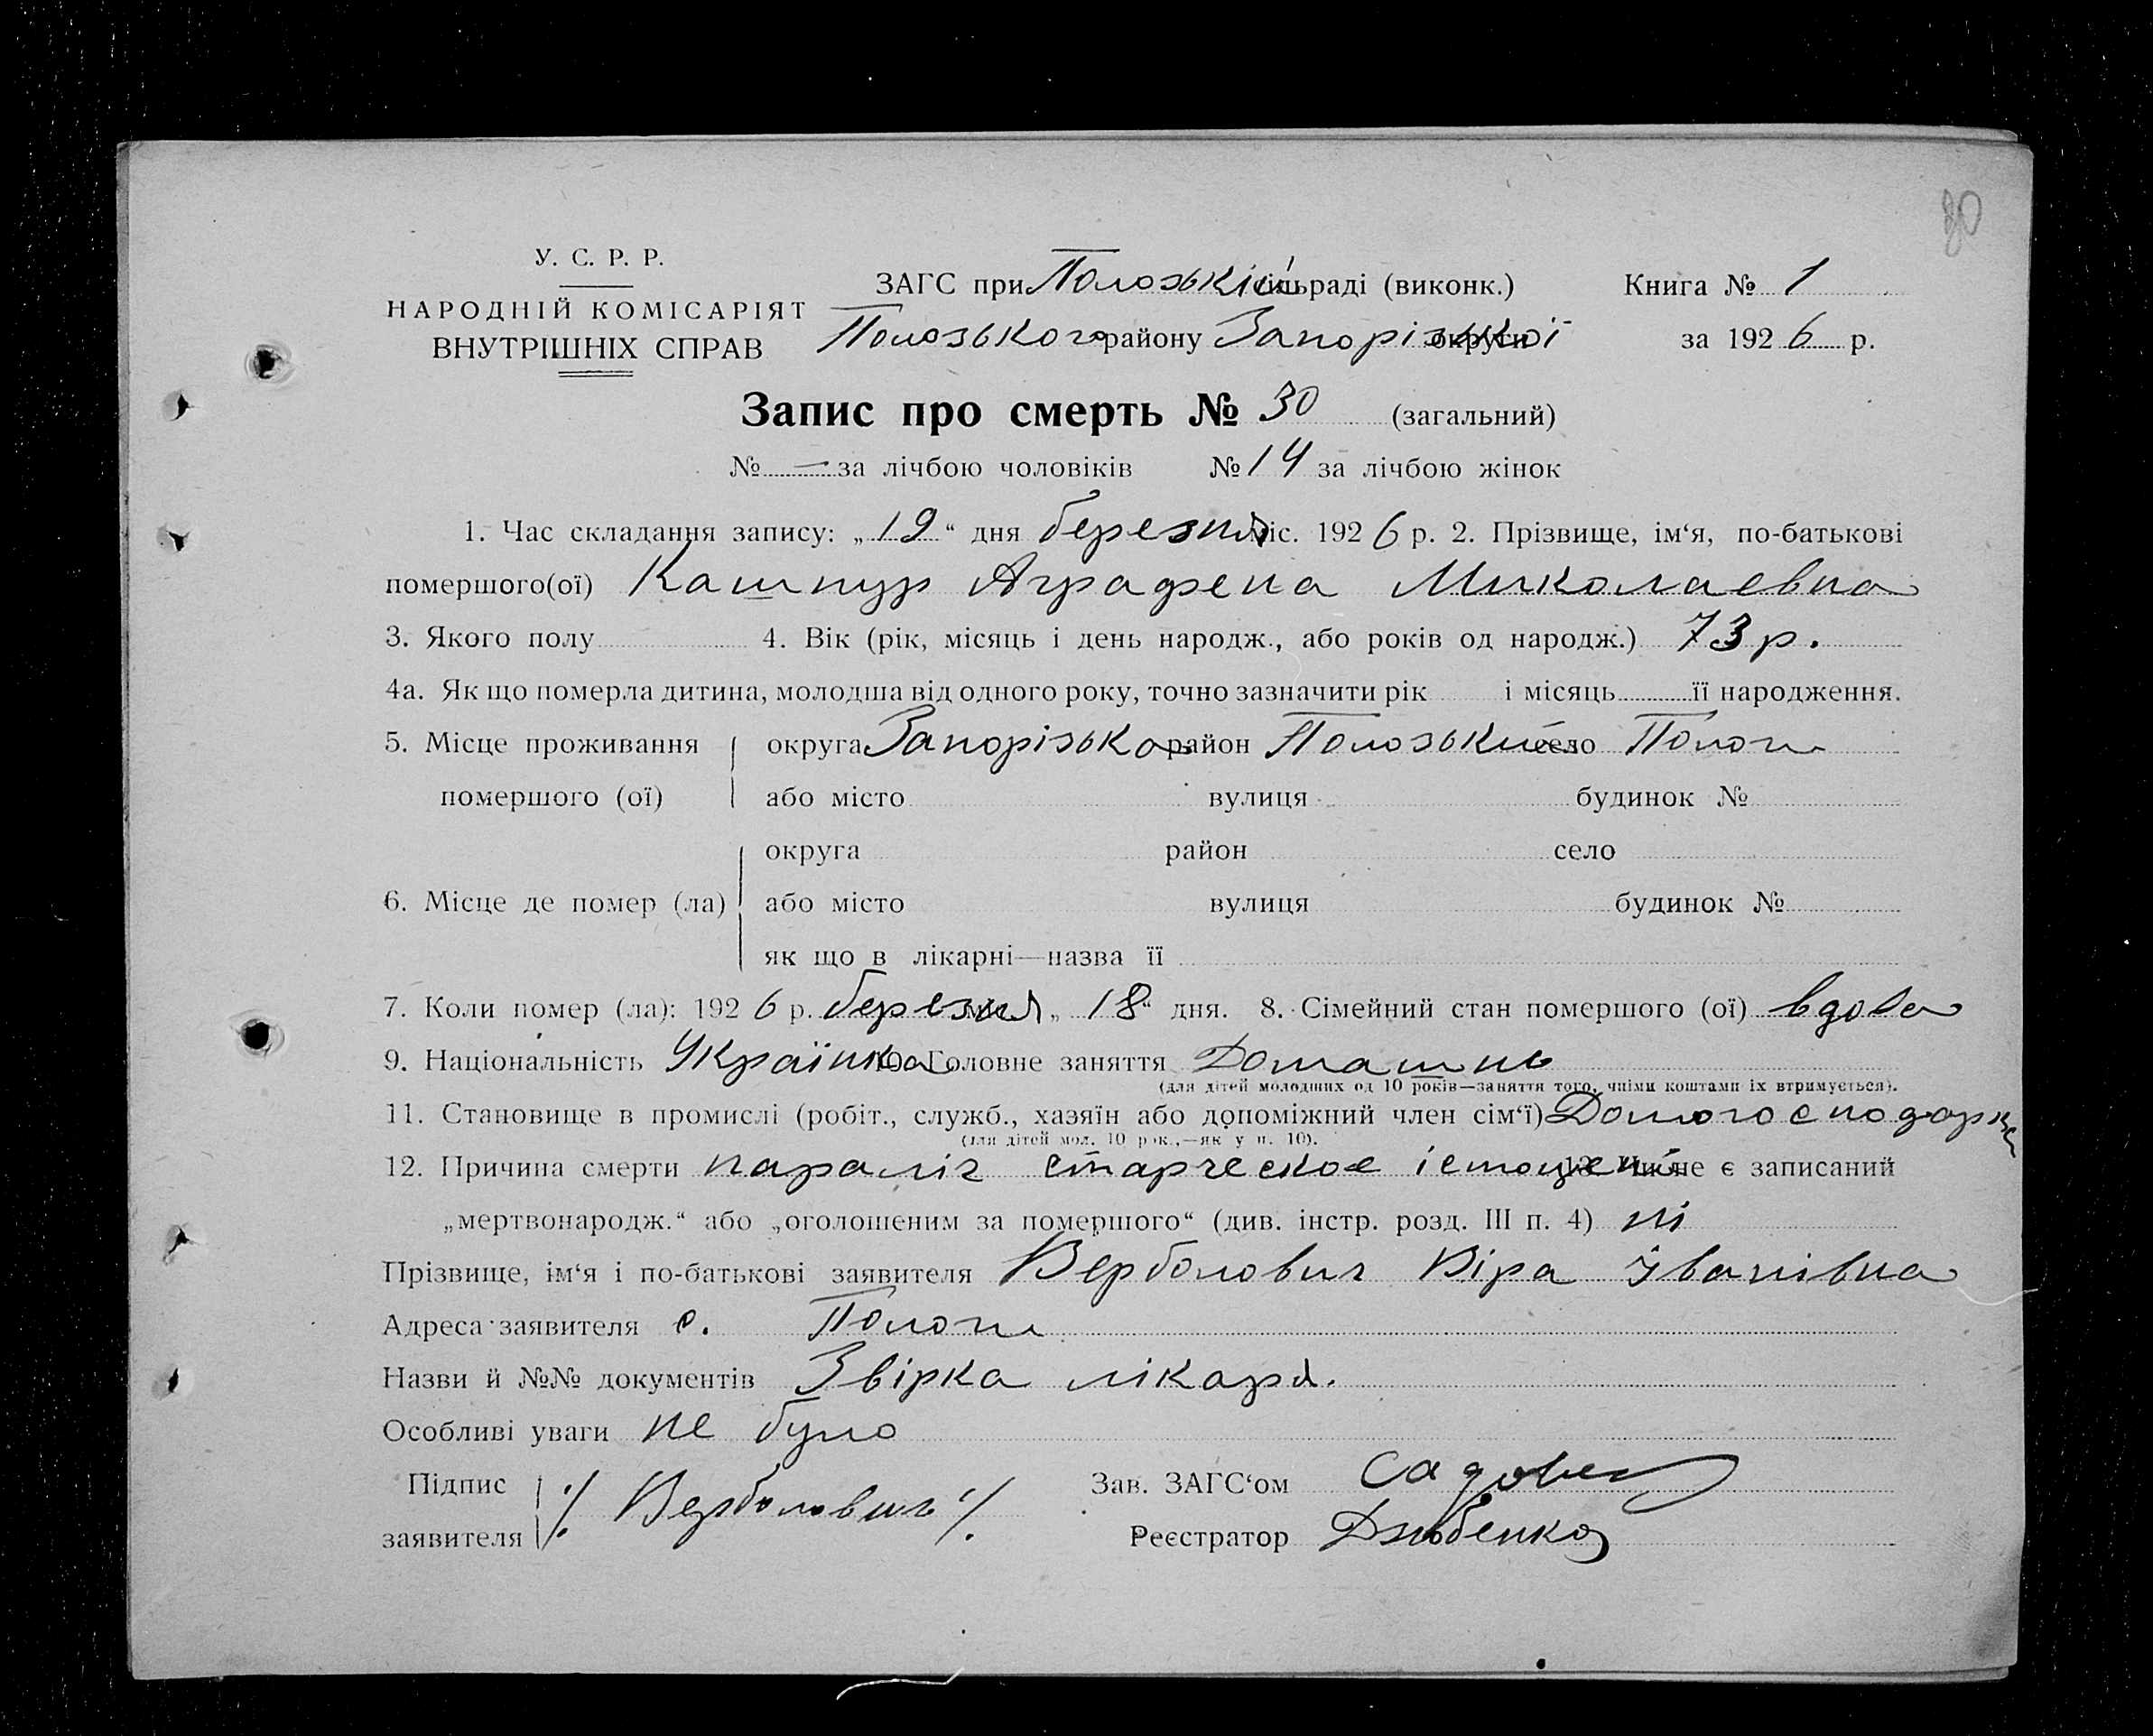 80
У. С. Р. Р.
НАРОДНІЙ КОМІСАРІЯТ
ВНУТРІШНІХ СПРАВ
ЗАГС при Полозькій сільраді (виконк.) Книга № 1
Полозького району Запорізької округи за 1926 р.
Запис про смерть № 30 (загальний)
№ — за лічбою чоловіків № 14 за лічбою жінок
1. Час складання запису: „19“ дня березня міс. 1926 р. 2. Прізвище, ім‘я, по-батькові
помершого(ої) Кашпур Аграфена Миколаевна
3. Якого полу 4. Вік (рік, місяць і день народж., або років од народж.) 73 р.
4а. Як що померла дитина, молодша від одного року, точно зазначити рік і місяць її народження.
5. Місце проживання округа Запорізька район Полозький село Пологи
помершого (ої) або місто вулиця будинок №
округа район село
6. Місце де помер (ла) або місто вулиця будинок №
як що в лікарні—назва її
7. Коли помер (ла): 1926 р. березня м. „18“ дня. 8. Сімейний стан помершого (ої) вдова
9. Національність Українка 10. Головне заняття Домашнь
(для дітей молодших од 10 років—заняття того, чиїми коштами їх втримується).
11. Становище в промислі (робіт., служб., хазяїн або допоміжний член сім‘ї) Домогосподарка
(для дітей мол. 10 рок.,—як у п. 10).
12. Причина смерти параліч старческое істощеніе 13. Чи не є записаний
„мертвонародж.“ або „оголошеним за помершого“ (див. інстр. розд. III п. 4) ні
Прізвище, ім‘я і по-батькові заявителя Верболович Віра Іванівна
Адреса заявителя с. Пологи
Назви й №№ документів Звірка лікаря.
Особливі уваги не було
Підпис Зав. ЗАГС‘ом
заявителя ./. Верболович ./. Реєстратор Дзюбенко